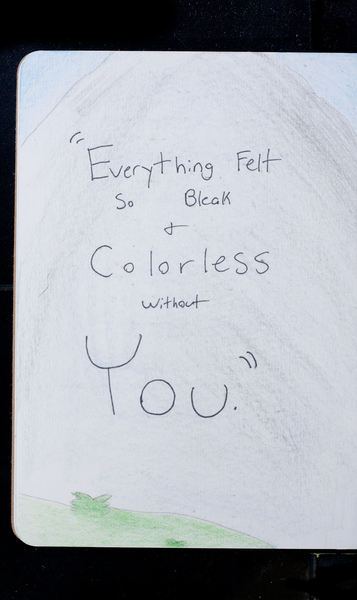 "Everything Felt
So Bleak
&
Colorless
Without
You."